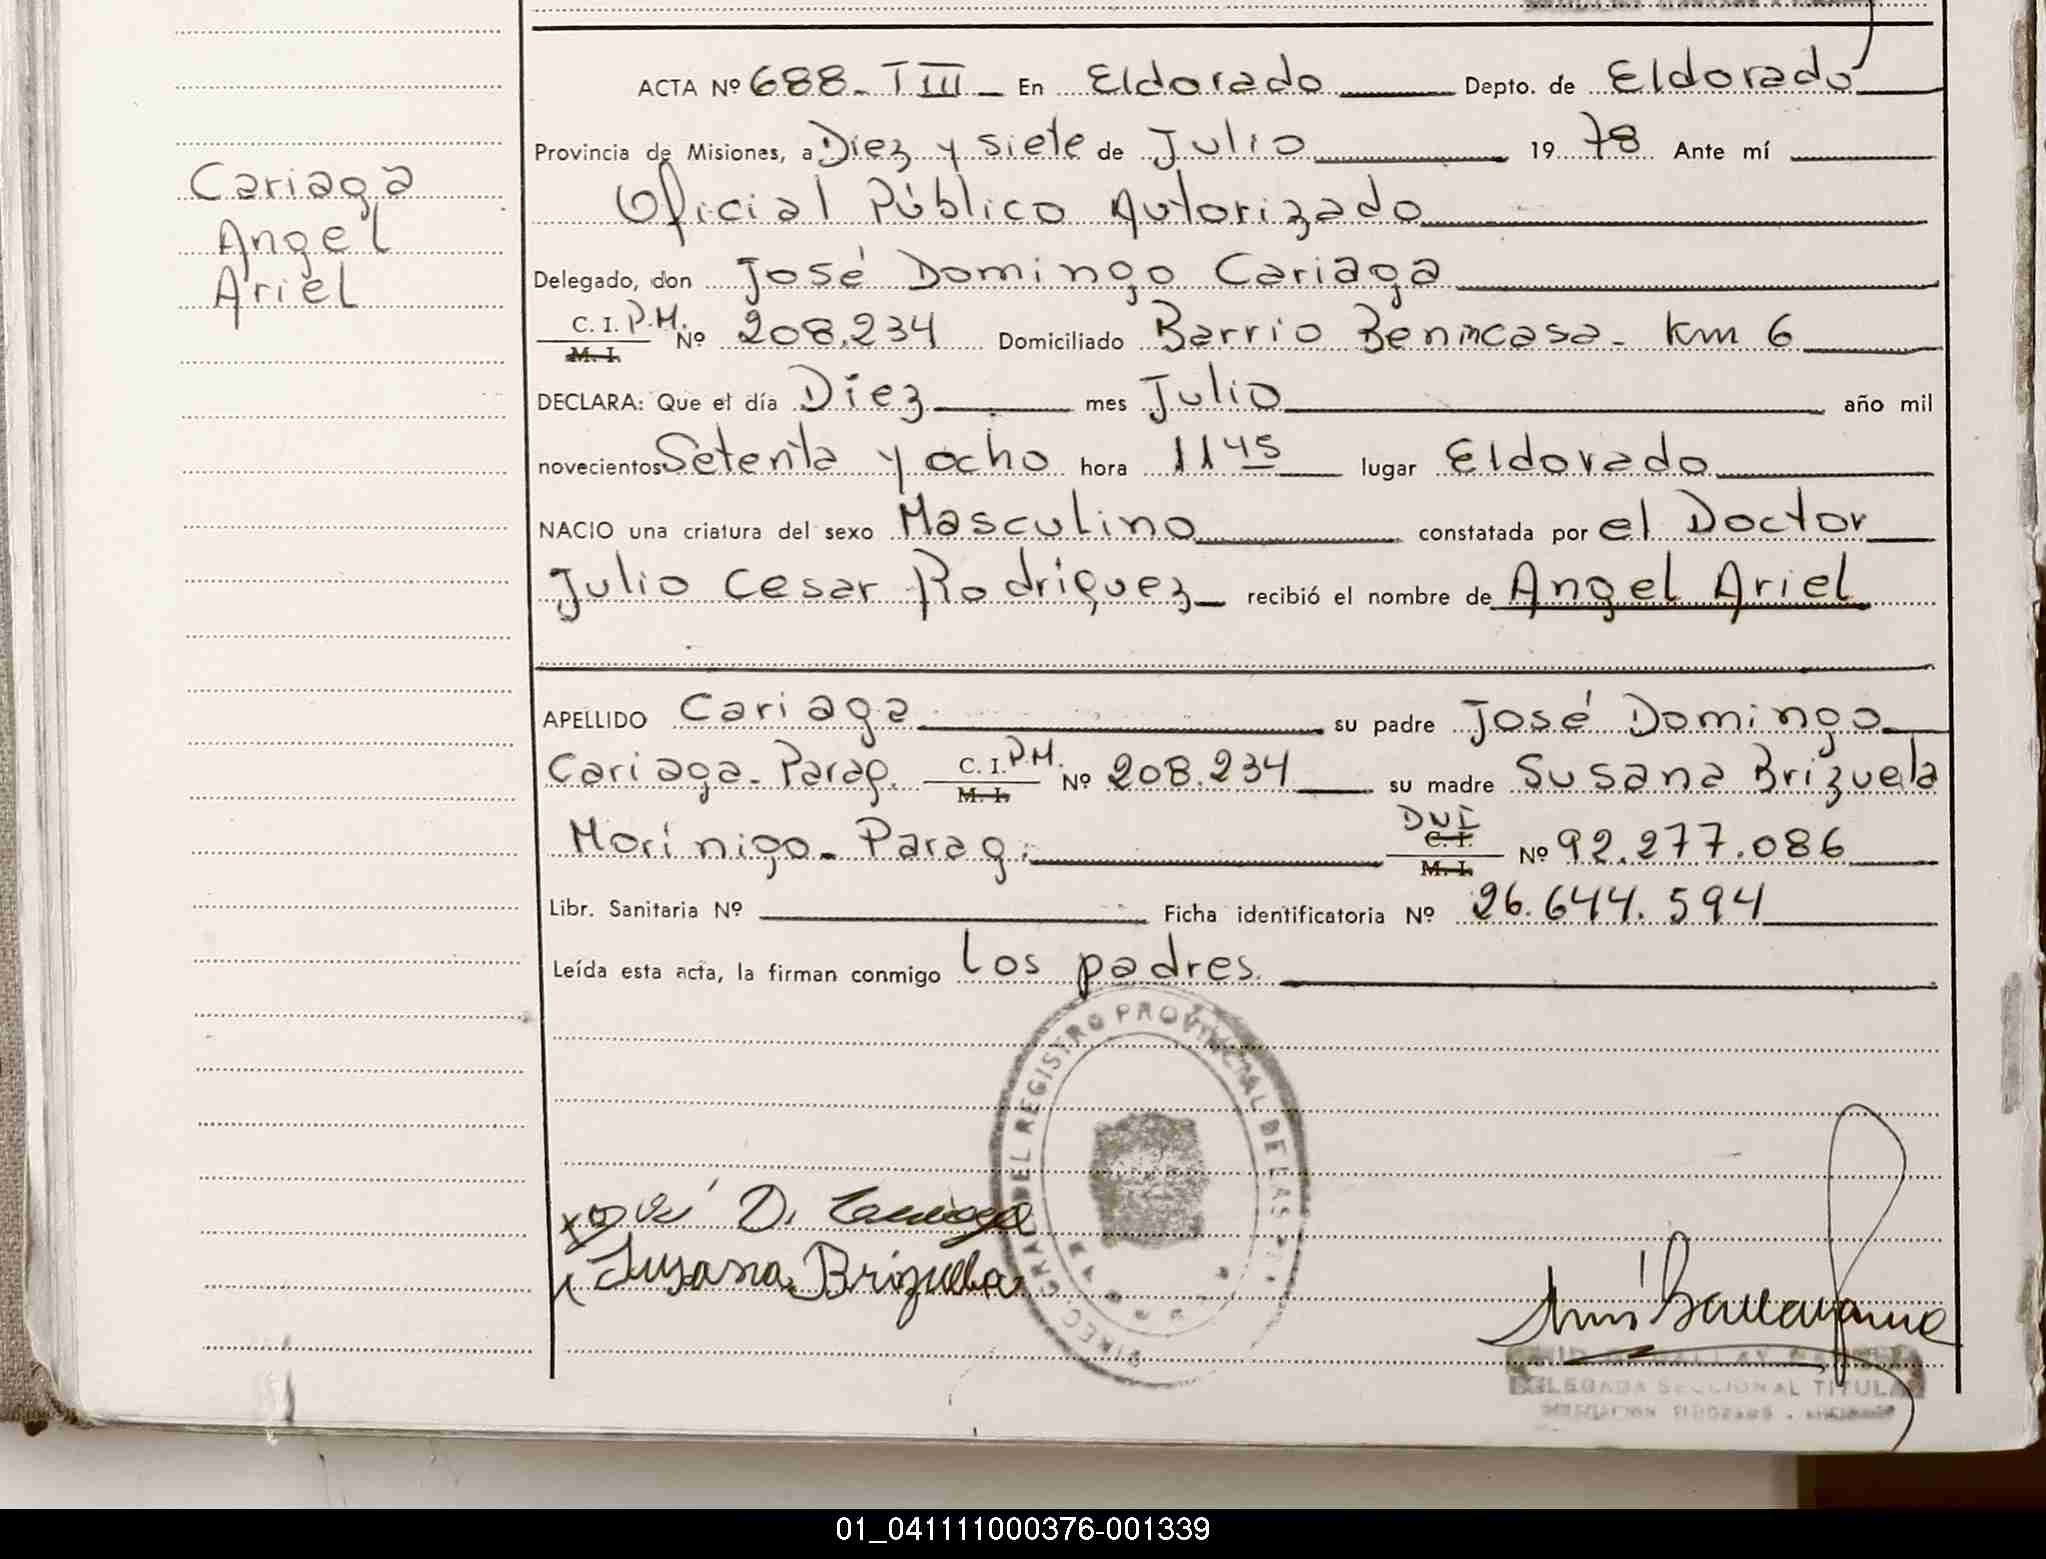 ACTA Nº 688 - T III - En Eldorado Depto. de Eldorado
Provincia de Misiones, a Diez y siete de Julio 19 78 Ante mí
Oficial Público Autorizado
Cariaga
Angel
Ariel
Delegado, don José Domingo Cariaga
C. I. P.M. Nº 208.234 Domiciliado Barrio Benincasa - Km 6
M. I.
DECLARA: Que el día Diez mes Julio año mil
novecientos Setenta y ocho hora 11 45 lugar Eldorado
NACIO una criatura del sexo Masculino constatada por el Doctor
Julio Cesar Rodriguez recibió el nombre de Angel Ariel
APELLIDO Cariaga su padre José Domingo
Cariaga - Parag. C. I. P.M. Nº 208.234 su madre Susana Brizuela
M. I.
Morinigo - Parag. DNI Nº 92.277.086
C. I.
M. I.
Libr. Sanitaria Nº Ficha identificatoria Nº 26.644.594
Leída esta acta, la firman conmigo los padres.
DIREC. GRAL. DEL REGISTRO PROVINCIAL DE LAS
José D. Cariaga
Susana Brizuela
DELEGADA SECCIONAL TITULAR
01_041111000376-001339